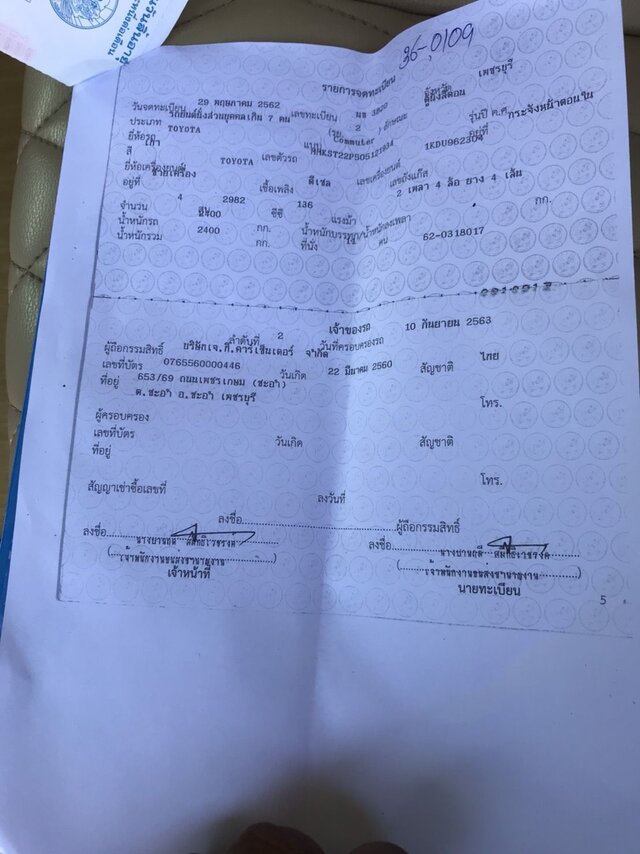 36-0109
รายการจดทะเบียน
วันจดทะเบียน 29 พฤษภาคม 2562 เลขทะเบียน นข 3820 จังหวัด เพชรบุรี
ประเภท รถยนต์นั่งส่วนบุคคลเกิน 7 คน (รย. 2 ) ลักษณะ ตู้นั่งสี่ตอน
ยี่ห้อรถ TOYOTA แบบ Commuter รุ่นปี ค.ศ.
สี เทา เลขตัวรถ อยู่ที่ กระจังหน้าตอนใน
ยี่ห้อเครื่องยนต์ TOYOTA เลขเครื่องยนต์ 1KDU962304
อยู่ที่ ซ้ายเครื่อง เชื้อเพลิง ดีเซล เลขถังแก๊ส
จำนวน 4 สูบ 2982 ซีซี 136 แรงม้า 2 เพลา 4 ล้อ ยาง 4 เส้น
น้ำหนักรถ 2400 กก. น้ำหนักบรรทุก/น้ำหนักลงเพลา กก.
น้ำหนักรวม 2400 กก. ที่นั่ง คน 62-0318017
เจ้าของรถ
ลำดับที่ 2 วันที่ครอบครองรถ 10 กันยายน 2563
ผู้ถือกรรมสิทธิ์ บริษัทเจ.กี.คาร์เซ็นเตอร์ จำกัด
เลขที่บัตร 0765560000446 วันเกิด 22 มีนาคม 2560 สัญชาติ ไทย
ที่อยู่ 653/69 ถนนเพชรเกษม (ชะอำ)
ต.ชะอำ อ.ชะอำ เพชรบุรี โทร.
ผู้ครอบครอง
เลขที่บัตร วันเกิด สัญชาติ
ที่อยู่
โทร.
สัญญาเช่าซื้อเลขที่ ลงวันที่
ลงชื่อ ผู้ถือกรรมสิทธิ์
ลงชื่อ ลงชื่อ
(เจ้าพนักงานขนส่งชำนาญงาน) (เจ้าพนักงานขนส่งชำนาญงาน)
เจ้าหน้าที่ นายทะเบียน
5